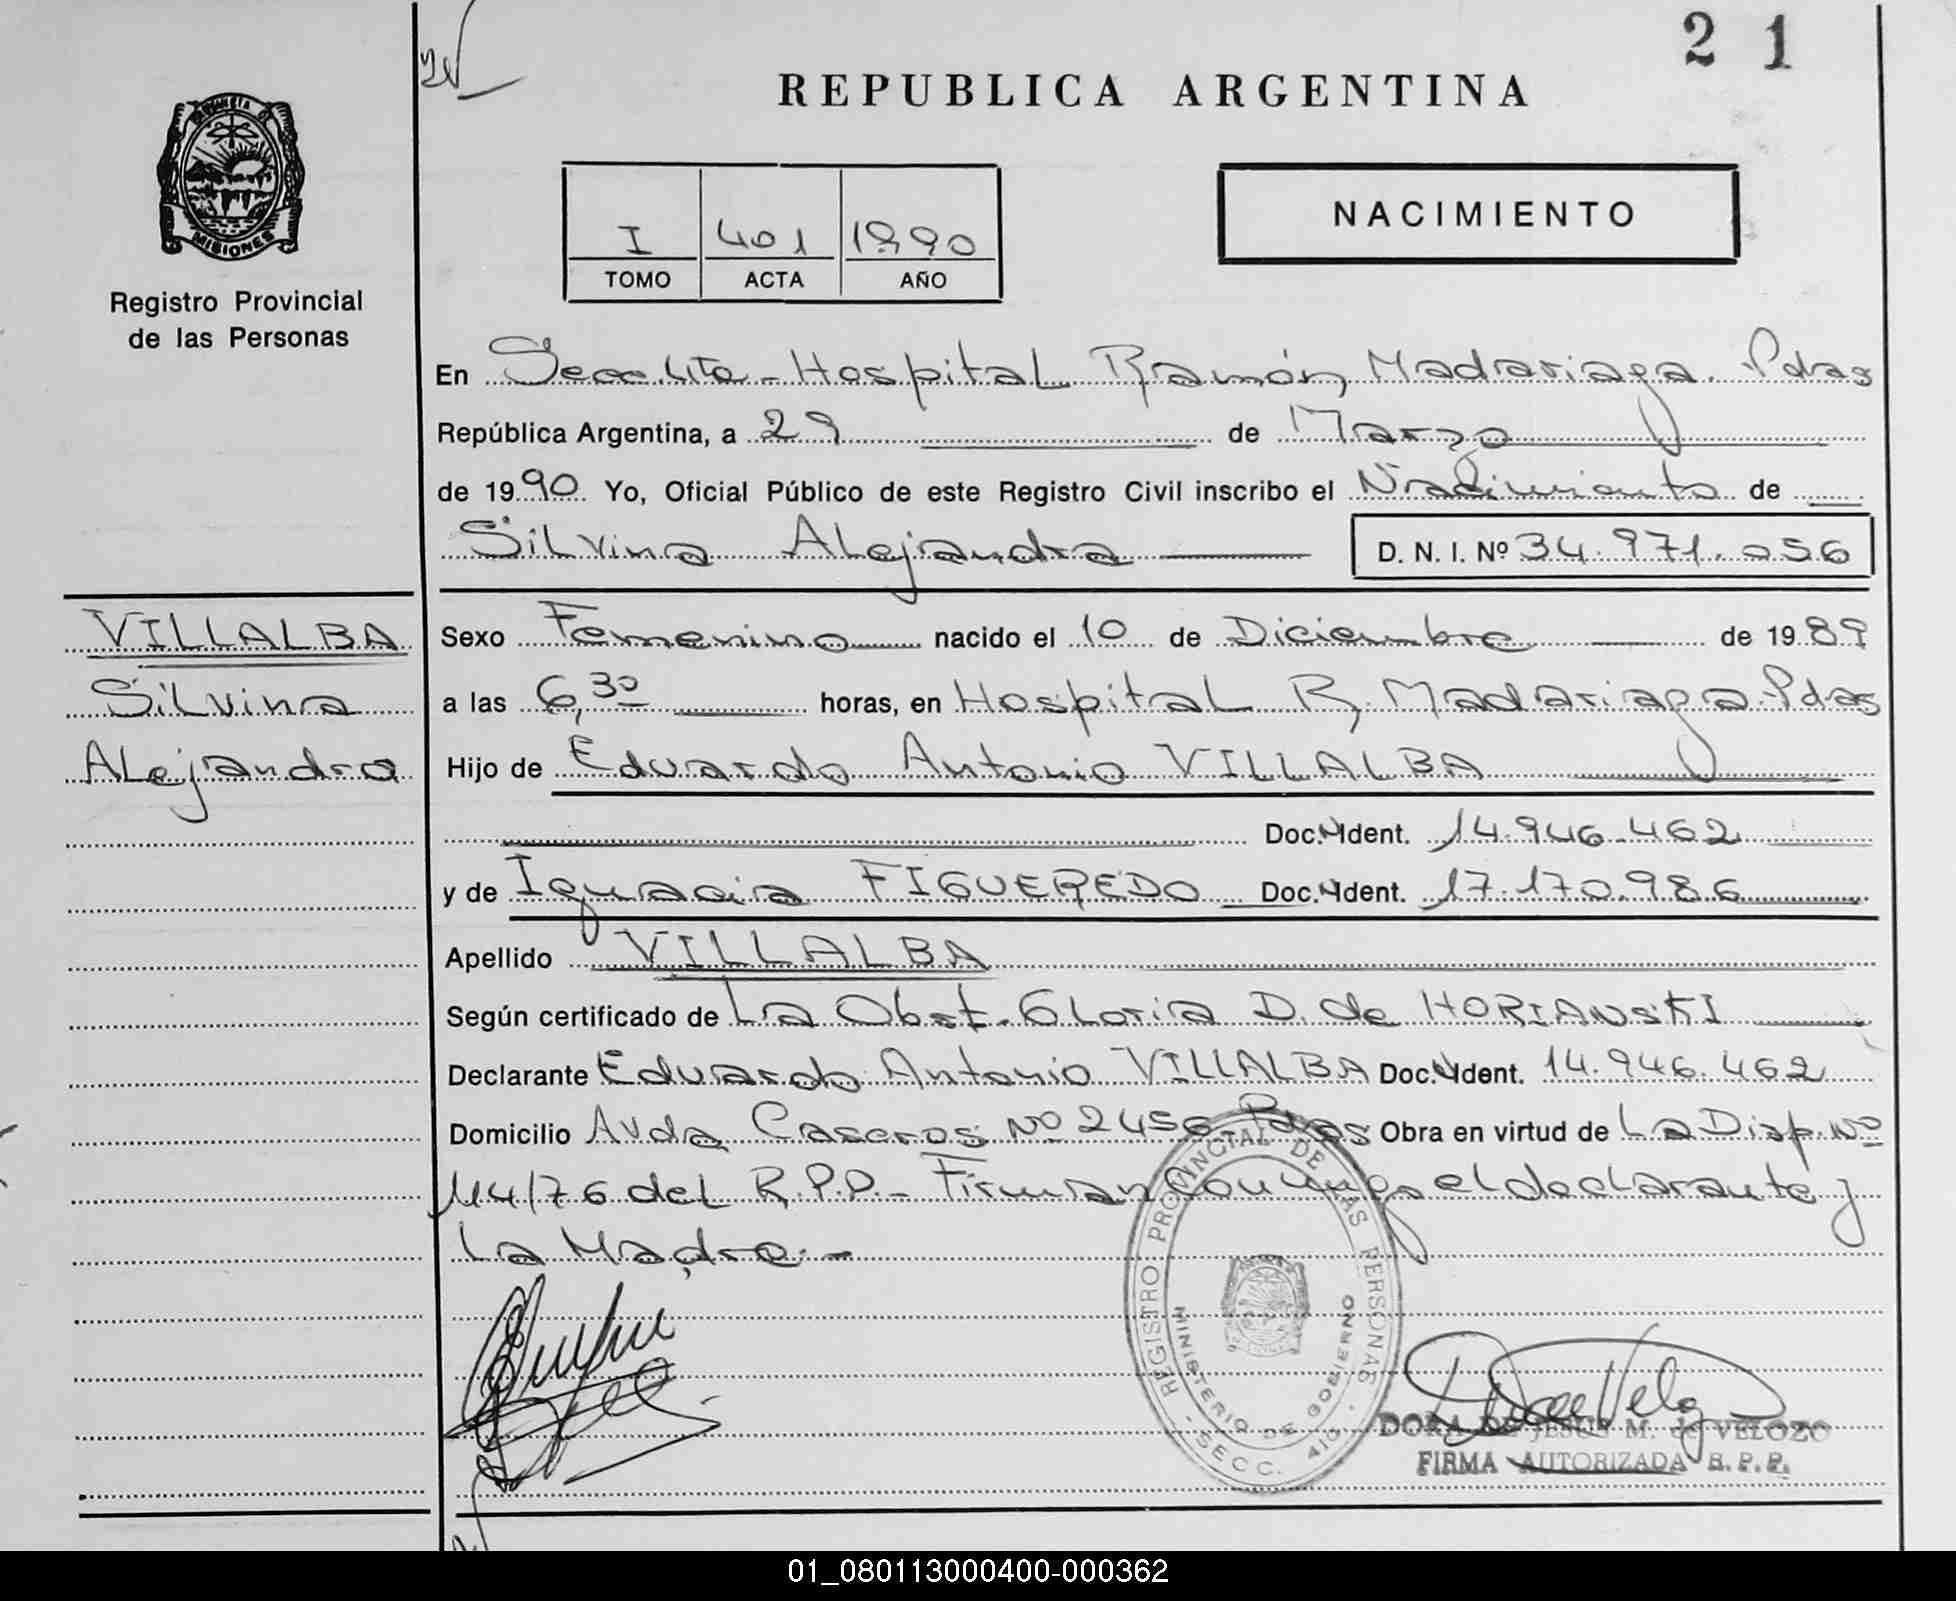 2 1
REPUBLICA ARGENTINA
PROVINCIA DE
MISIONES
Registro Provincial
de las Personas
I 401 1990
TOMO ACTA AÑO
NACIMIENTO
En Secc. 4ta - Hospital Ramón Madariaga. Pdas
República Argentina, a 29 de Marzo
de 1990 Yo, Oficial Público de este Registro Civil inscribo el Nacimiento de
Silvina Alejandra D. N. I. Nº 34.971.056
VILLALBA
Silvina
Alejandra
Sexo Femenino nacido el 10 de Diciembre de 1989
a las 6,30 horas, en Hospital R. Madariaga. Pdas
Hijo de Eduardo Antonio VILLALBA
Doc. Ident. 14.946.462
y de Ignacia FIGUEREDO Doc. Ident. 17.170.986
Apellido VILLALBA
Según certificado de La Obst. Gloria D. de HORIANSKI
Declarante Eduardo Antonio VILLALBA Doc. Ident. 14.946.462
Domicilio Avda Caseros Nº 2456 Pdas Obra en virtud de La Disp. Nº
114/76 del R.P.P. - Firman conmigo el declarante y
La Madre. -
REGISTRO PROVINCIAL DE LAS PERSONAS
MINISTERIO DE GOBIERNO
- SECC. 4ta -
DORA DE JESUS M. de VELOZO
FIRMA AUTORIZADA R.P.P.
01_080113000400-000362